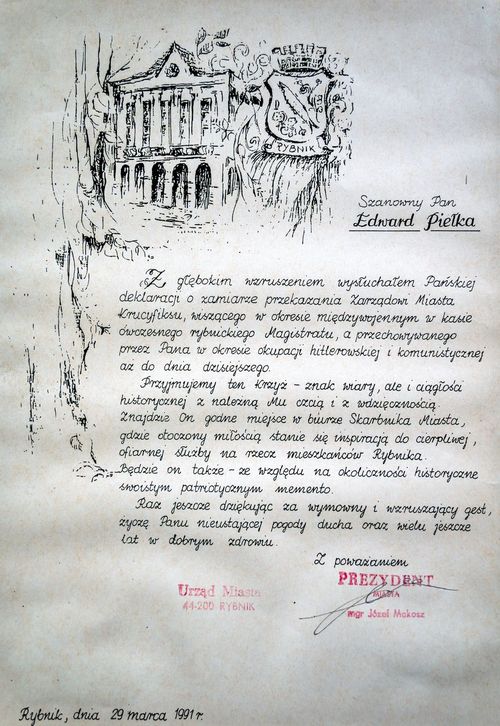 RYBNIK
Szanowny Pan
Edward Pielka
Z głębokim wzruszeniem wysłuchałem Pańskiej
deklaracji o zamiarze przekazania Zarządowi Miasta
Krucyfiksu, wiszącego w okresie międzywojennym w kasie
ówczesnego rybnickiego Magistratu, a przechowywanego
przez Pana w okresie okupacji hitlerowskiej i komunistycznej
aż do dnia dzisiejszego.
Przyjmujemy ten Krzyż - znak wiary, ale i ciągłości
historycznej z należną Mu czcią i z wdzięcznością.
Znajdzie On godne miejsce w biurze Skarbnika Miasta,
gdzie otoczony miłością stanie się inspiracją do cierpliwej,
ofiarnej służby na rzecz mieszkańców Rybnika.
Będzie on także - ze względu na okoliczności historyczne
swoistym patriotycznym memento.
Raz jeszcze dziękując za wymowny i wzruszający gest,
życzę Panu nieustającej pogody ducha oraz wielu jeszcze
lat w dobrym zdrowiu.
Z poważaniem
PREZYDENT
MIASTA
mgr Józef Makosz
Urząd Miasta
44-200 RYBNIK
Rybnik, dnia 29 marca 1991 r.